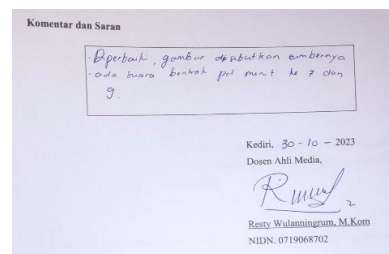 Komentar dan Saran
- Diperbaiki, gambar disebutkan sumbernya
- ada suara bentrok pd menit ke 7 dan
9.
Kediri, 30 - 10 - 2023
Dosen Ahli Media,
Resty Wulanningrum, M.Kom
NIDN. 0719068702